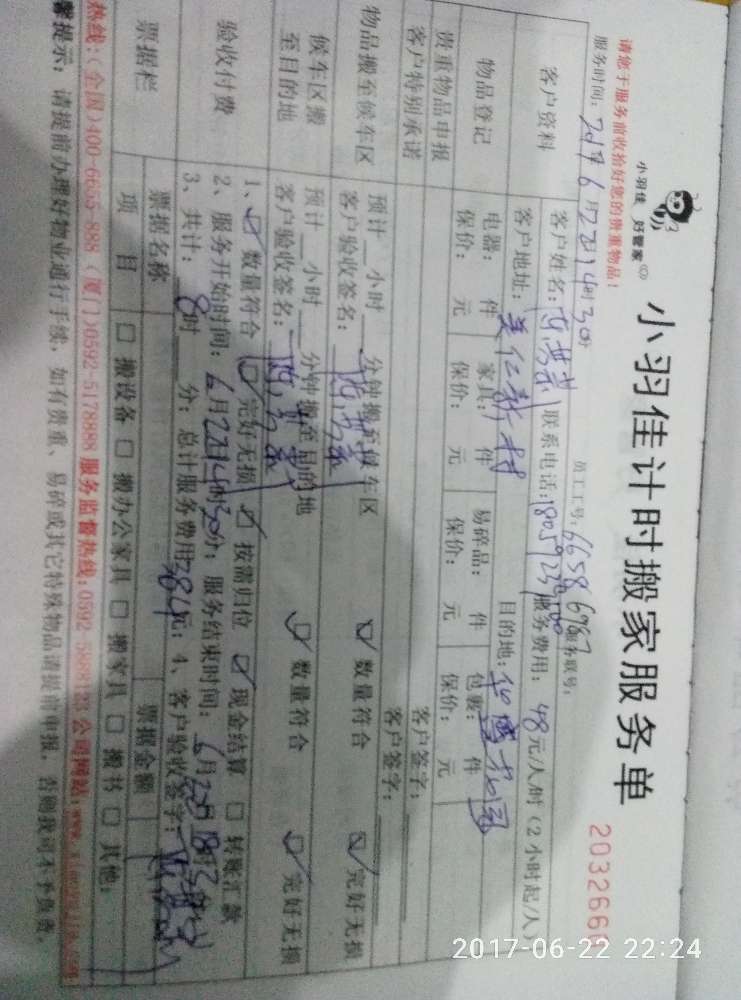 小羽佳 好管家
小羽佳计时搬家服务单
2032660
请您于服务前收拾好您的贵重物品！
员工工号：6658 6767
服务时间：2017年6月22日14时30分
客户资料
客户姓名：
联系电话：
服务费用：48元/人/时（2小时起/人）
客户地址：美仁新村
目的地：
物品登记
电器： 件 家具： 件 易碎品： 件 包裹： 件
保价： 元 保价： 元 保价： 元 保价： 元
贵重物品申报
客户签字：
客户特别承诺
客户签字：
物品搬至候车区
预计 小时 分钟搬至候车区 数量符合 完好无损
客户验收签名：
候车区搬至目的地
预计 小时 分钟搬至目的地 数量符合 完好无损
客户验收签名：
验收付费
1、 数量符合 完好无损 按需归位 现金结算 转账汇款
2、服务开始时间：6月22日14时30分；服务结束时间：6月22日18时
3、共计：8时 分；总计服务费用384元；4、客户验收签字：
票据栏
票据名称 票据金额
项目 □ 搬设备 □ 搬办公家具 □ 搬家具 □ 搬书 □ 其他：
热线：（全国）400-6655-888 （厦门）0592-5178888 服务监督热线：0592 公司网站：
馨提示：请提前办理好物业通行手续，如有贵重、易碎或其它特殊物品请提前申报，否则我司不予负责。
2017-06-22 22:24